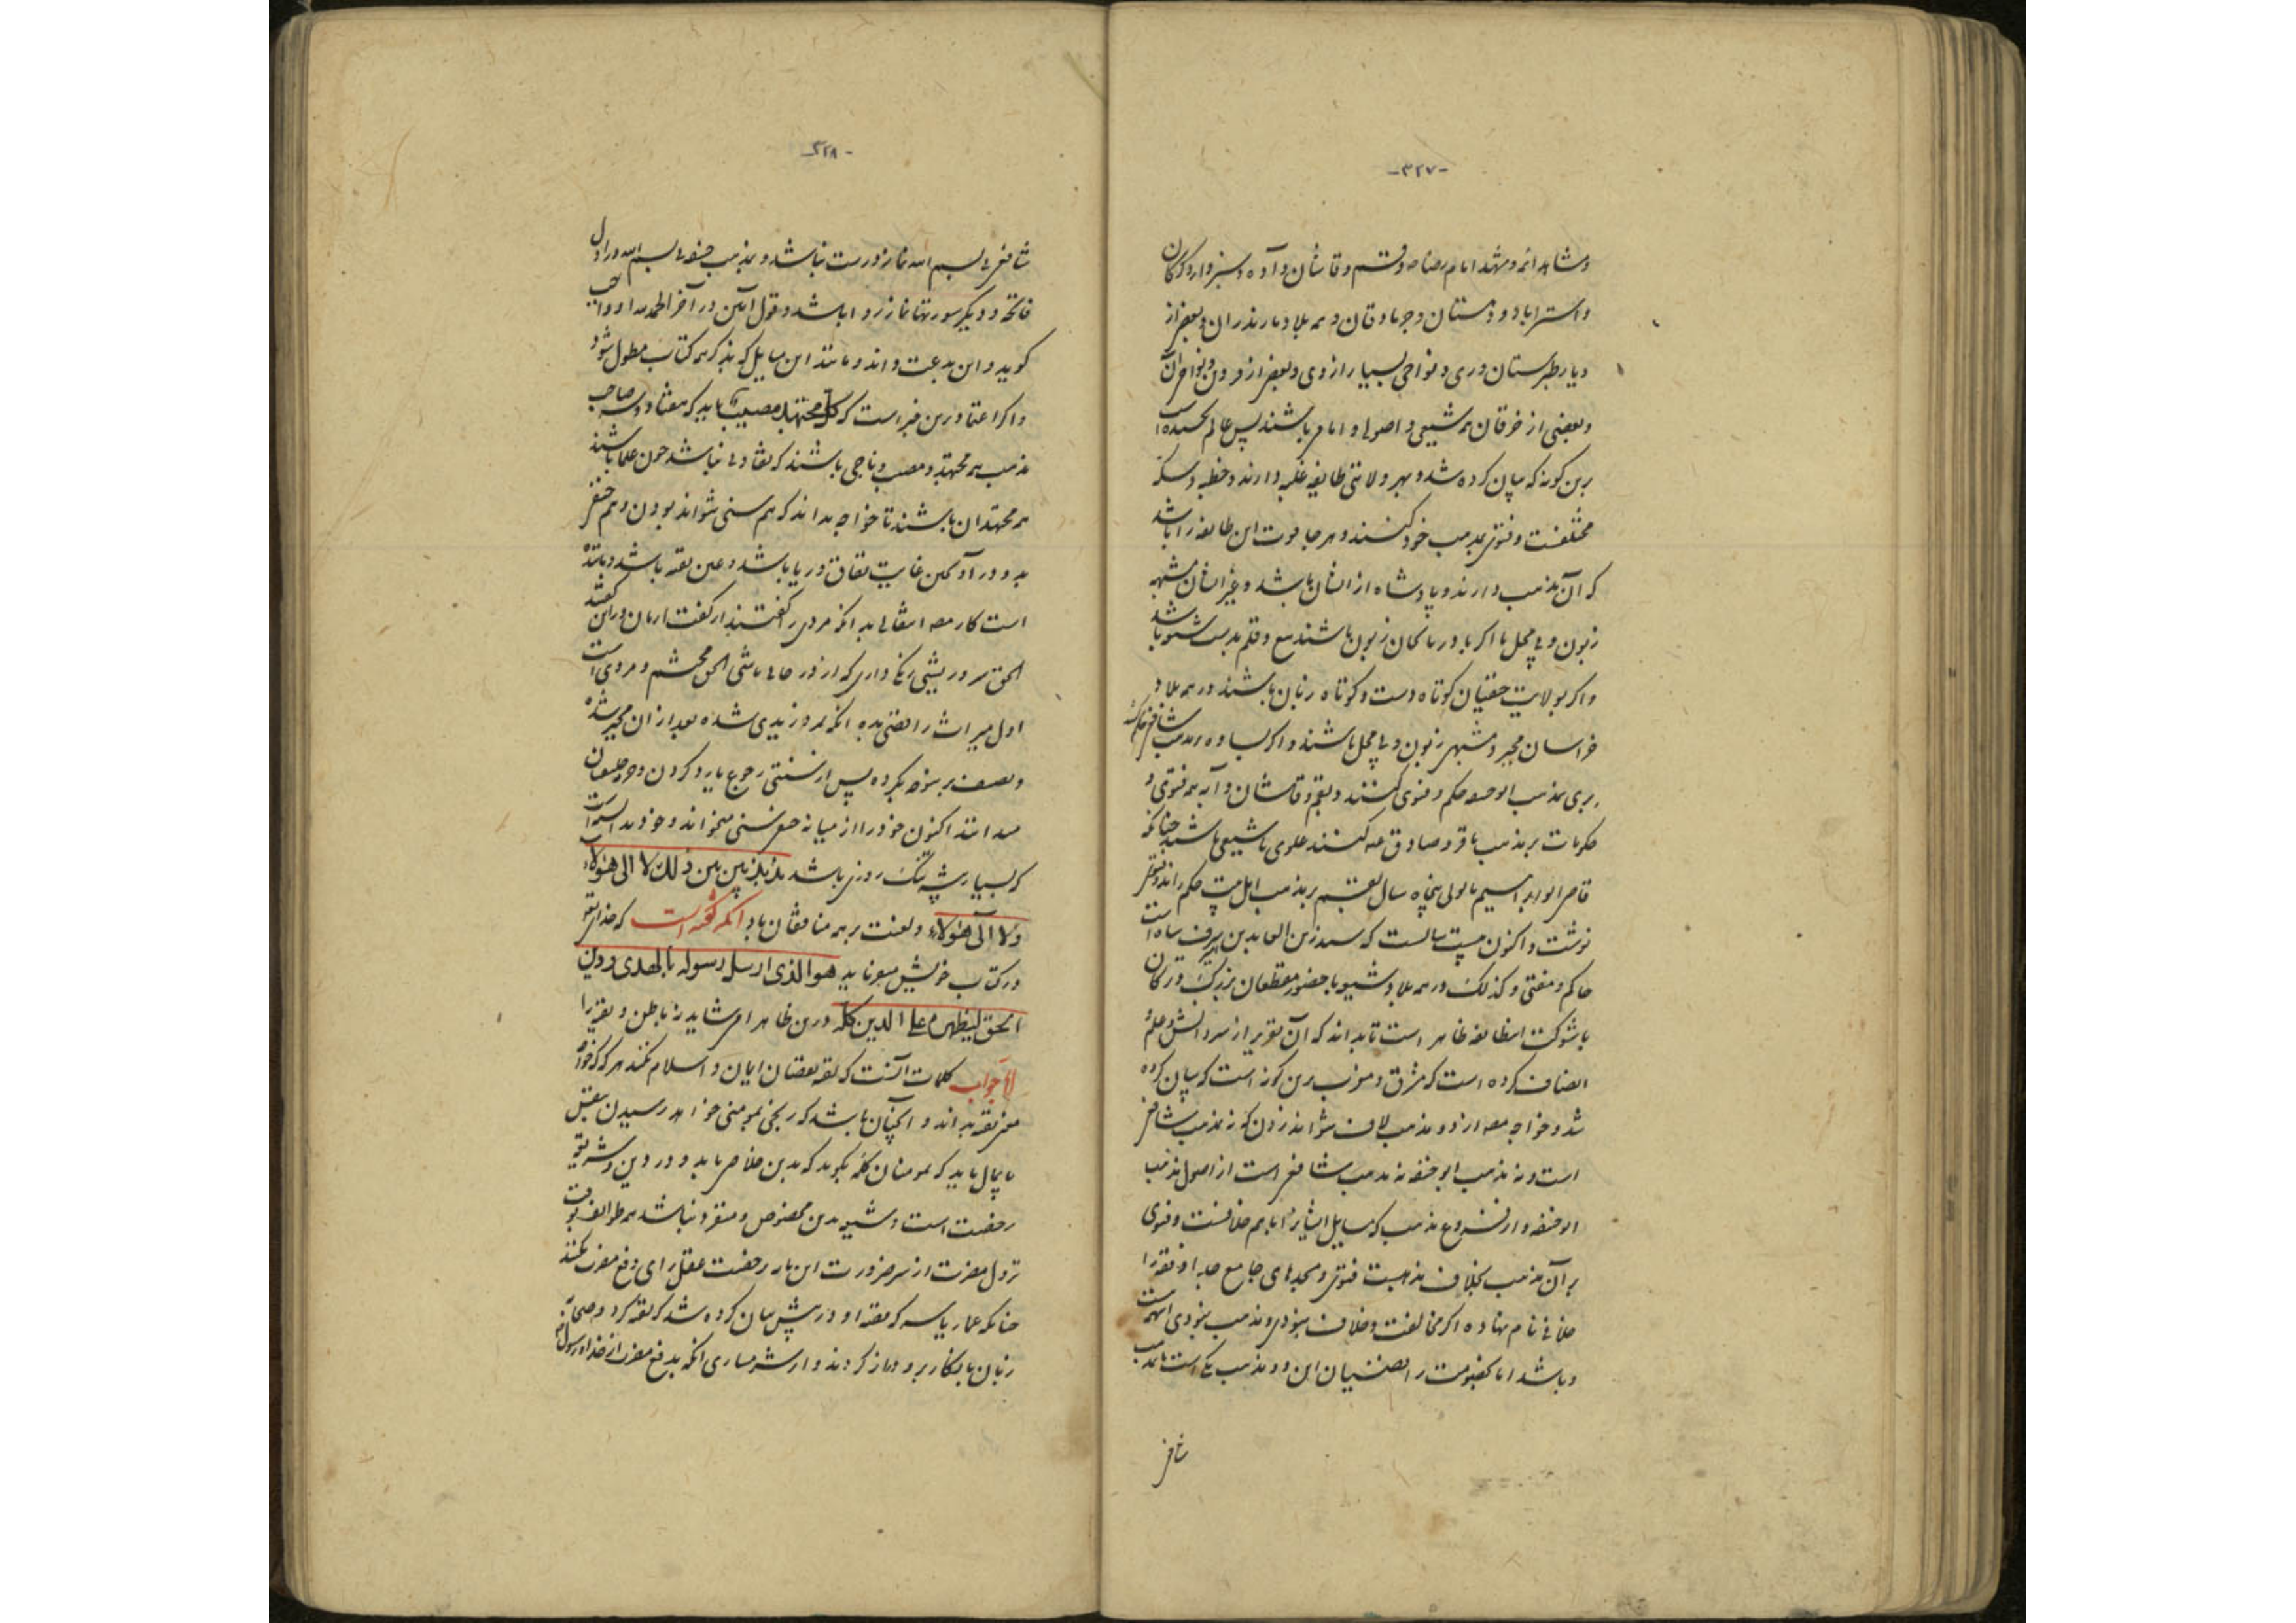 -۳۲۷-
و مشاهد ائمه و مشهد امام رضا و قم و قاشان و آوه و سبزوار و گرگان
و استرآباد و دهستان و جربادقان و همه بلاد مازندران و بعضی از
دیار طبرستان و ری و نواحی بسیار از وی و بعضی از قزوین و نواحی آن
و بعضی از خرقان همه شیعی و اصولی و امامی باشند پس عالم
برین گونه که بیان کرده شد و بهر ولایتی طایفه غلبه دارند و خطبه و سکه
مختلفست و فتوی بمذهب خود کنند و هر جا قوت این طایفه را باشد
که آن مذهب دارند و پادشاه از ایشان باشد و غیر ایشان
زبون و بی محل با اگر باوربایگان زبون باشند تیغ و قلم بدست باشد
و اگر بولایت حنفیان کوتاه دست و کوتاه زبان باشند در همه بلاد
خراسان مجبر و مشبهی زبون و بی محل باشند و اگر بساوه بمذهب شافعی حکم کنند
بری بمذهب ابوحنیفه حکم و فتوی کنند و بقم و قاشان و آبه همه فتوی و
حکومات بر مذهب باقر و صادق کنند علوی یا شیعی باشند چنانکه
قاضی ابو ابراهیم بابوئی پنجاه سال بقم بر مذهب اهل بیت حکم راند و فتوی
نوشت و اکنون بیست سالست که سید زین الدین امیره شرفشاه است
حاکم و مفتی و کذلک در همه بلاد شیعه با حضور مقطعان بزرگ و ترکان
با شوکت این طایفه ظاهر است تا بداند که آن تقریر از سر دانش و علم و
انصاف کرده است که مشرق و مغرب برین گونه است که بیان کرده
شد و خواجه مصنف از دو مذهب لاف نتواند زدن که نه بمذهب شافعی
است و نه بمذهب ابوحنیفه نه مذهب شافعی است از اصول مذهب
ابوحنیفه و از فروع مذهب که مسایل ایشان را با هم خلافست و فتوی
بر آن مذهب بخلاف مذهبست فتوی و مجدهای جامع جدا و فقه را
خلافی نام نهاده اگر مخالفت و خلاف نبودی و مذهب نبودی
و باشد اما بخصومت رافضیان این دو مذهب یکی است بمذهب
شافعی
-۳۲۸-
شافعی بی بسم الله نماز درست نباشد و بمذهب حنفی بی بسم الله در اول
فاتحه و دیگر سورتها نماز روا باشد و قول آمین در آخر الحمد او واجب
گوید و این بدعت داند و مانند این مسایل که بذکر همه کتاب مطول شود
و اگر اعتماد برین خبر است که کل مجتهد مصیب باید که هفتاد و سه صاحب
مذهب همه مجتهد و مصیب و ناجی باشند که تفاوتی نباشد چون علما باشند
همه مجتهدان باشند تا خواجه بداند که هم سنی نتواند بودن و هم حنفی
بدو در آویختن غایت نفاق و ریا باشد و عین تقیه باشد و مانند
است کار مصنف انتقالی بدانکه مردی را گفتند از کفت
الحق سر و ریشی رنگ داری که از دور خالی باشی الحق محتشم و مردی است
اول میراث رافضی بده آنکه بمرو زیدی شده بعد از آن مجبر شده
و نصف بر نوخته بگرده پس از سنتی رجوع باید کردن
میدانند اکنون خود را از میانه حنفی سنی میخواند و خود بداند
که بسیار ریشه تنگ روزی باشد مذبذبین بین ذلک لا الی هؤلاء
ولا الی هؤلاء و لعنت بر همه منافقان باد آنکه گفته است که خدای تعالی
در کتاب خویش میفرماید هو الذی ارسل رسوله بالهدی و دین
الحق لیظهره علی الدین کله و درین ظاهر امر شاید نه باطن و تقیه را
اما جواب کلمات آنست که تقیه نقصان ایمان و اسلام نکند هر که خواه
معنی تقیه بداند و آنچنان باشد که رنجی بمومنی خواهد رسیدن بنفس
یا بمال باید که مومنان کلمه بگویند که بدین خلاص یابد و در دین و شریعت
رخصت است و شیعه بدین مخصوص و منفرد نباشد همه طوایف بوقت
نزول مضرت از سر ضرورت این باب رخصت عقل برای دفع مضرت بکنند
چنانکه عمار یاسر که تقیه او در پیش بیان کرده شد که تقیه کرد و صحابه
زبان بانکار برو دراز کردند و از شرمساری آنکه بدفع مضرت از خدا و رسول